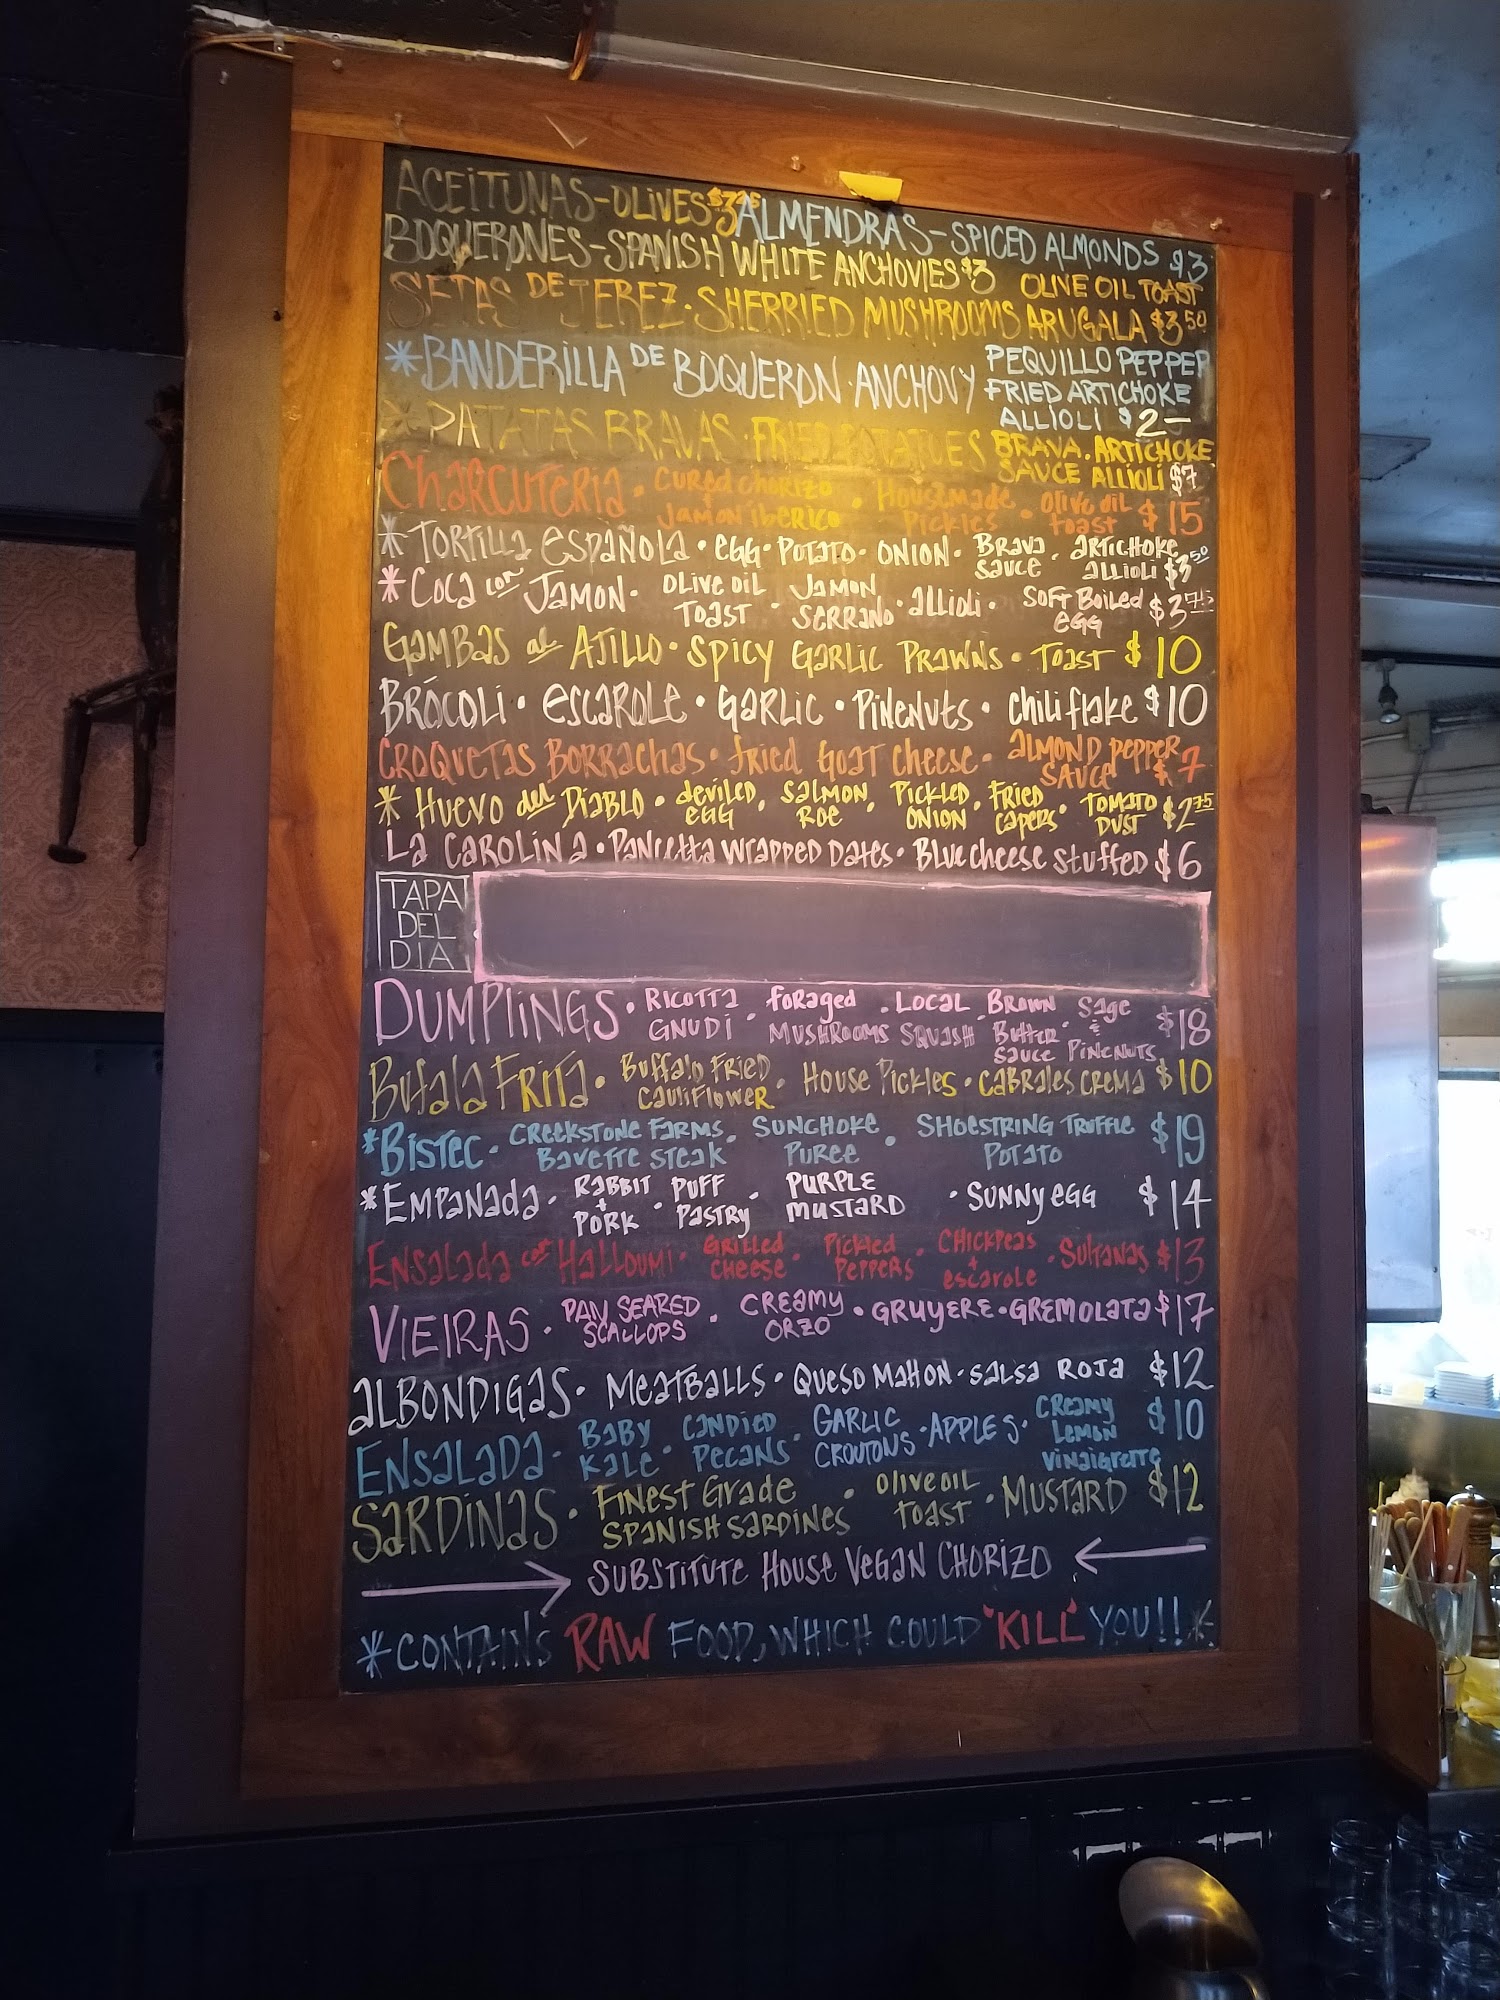 ACEITUNAS-OLIVES $3.25 ALMENDRAS-SPICED ALMONDS $3
BOQUERONES-SPANISH WHITE ANCHOVIES $3
SETAS DE JEREZ · SHERRIED MUSHROOMS OLIVE OIL TOAST ARUGALA $3.50
*BANDERILLA DE BOQUERON · ANCHOVY PEQUILLO PEPPER
FRIED ARTICHOKE
ALLIOLI $2-
* PATATAS BRAVAS · FRIED POTATOES BRAVA · ARTICHOKE
SAUCE ALLIOLI $7
CHARCUTERIA · CURED CHORIZO + JAMON IBERICO · HOUSEMADE PICKLES · OLIVE OIL TOAST $15
*TORTILLA ESPAÑOLA · EGG · POTATO · ONION · BRAVA SAUCE · ARTICHOKE ALLIOLI $3.50
*COCA CON JAMON · OLIVE OIL TOAST · JAMON SERRANO · ALLIOLI · SOFT BOILED EGG $3.75
GAMBAS AL AJILLO · SPICY GARLIC PRAWNS · TOAST $10
BRÓCOLI · ESCAROLE · GARLIC · PINENUTS · CHILI FLAKE $10
CROQUETAS BORRACHAS · FRIED GOAT CHEESE · ALMOND PEPPER SAUCE $7
* HUEVO DEL DIABLO · DEVILED EGG · SALMON ROE · PICKLED ONION · FRIED CAPERS · TOMATO DUST $2.75
LA CAROLINA · PANCETTA WRAPPED DATES · BLUE CHEESE STUFFED $6
TAPA
DEL
DIA
DUMPLINGS · RICOTTA GNUDI · FORAGED MUSHROOMS · LOCAL SQUASH · BROWN BUTTER SAUCE · SAGE & PINENUTS $18
BUFALA FRITA · BUFFALO FRIED CAULIFLOWER · HOUSE PICKLES · CABRALES CREMA $10
*BISTEC · CREEKSTONE FARMS BAVETTE STEAK · SUNCHOKE PUREE · SHOESTRING TRUFFLE POTATO $19
*EMPANADA · RABBIT + PORK · PUFF PASTRY · PURPLE MUSTARD · SUNNY EGG $14
ENSALADA CON HALLOUMI · GRILLED CHEESE · PICKLED PEPPERS · CHICKPEAS + ESCAROLE · SULTANAS $13
VIEIRAS · PAN SEARED SCALLOPS · CREAMY ORZO · GRUYERE · GREMOLATA $17
ALBONDIGAS · MEATBALLS · QUESO MAHON · SALSA ROJA $12
ENSALADA · BABY KALE · CANDIED PECANS · GARLIC CROUTONS · APPLES · CREAMY LEMON VINAIGRETTE $10
SARDINAS · FINEST GRADE SPANISH SARDINES · OLIVE OIL TOAST · MUSTARD $12
SUBSTITUTE HOUSE VEGAN CHORIZO
*CONTAINS RAW FOOD, WHICH COULD "KILL" YOU!!*